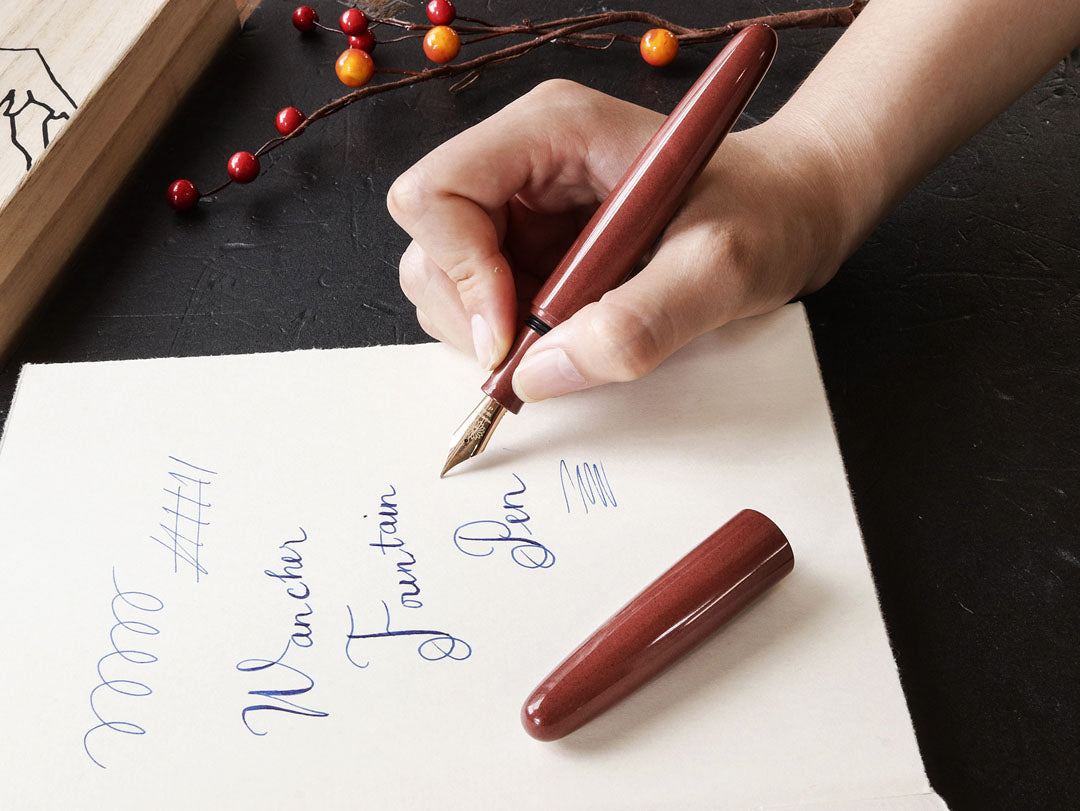 Wancher
Fountain
Pen